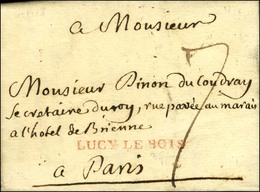 a Monsieur
7
Monsieur Pinon du Coudray
Secretaire du roy, rue pavée au marais
a l'hotel de Brienne
LUCY LE BOIS
a Paris